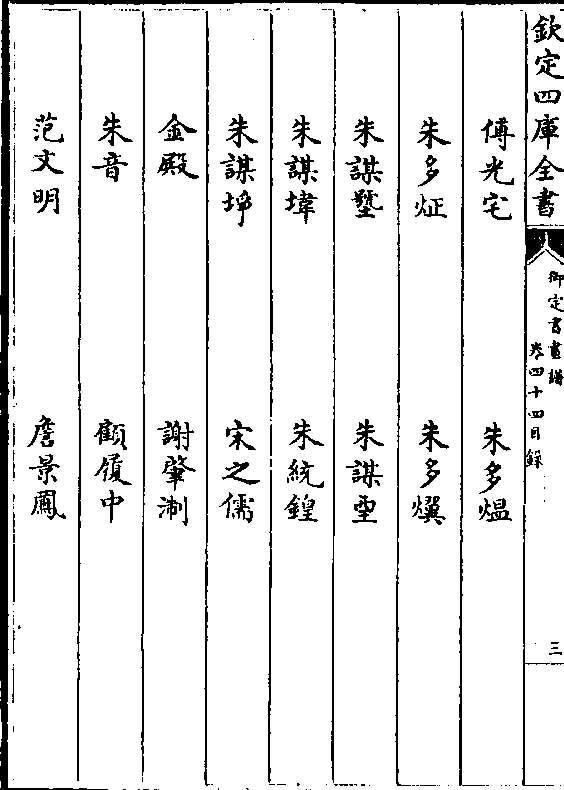 欽定四庫全書
御定書畫譜
卷四十四目錄
三
傅光宅 朱多熅
朱多炡 朱多熼
朱謀㙔 朱謀垔
朱謀㙔 朱統鍠
朱謀埩 宋之儒
金殿 謝肇淛
朱音 顧履中
范文明 詹景鳳